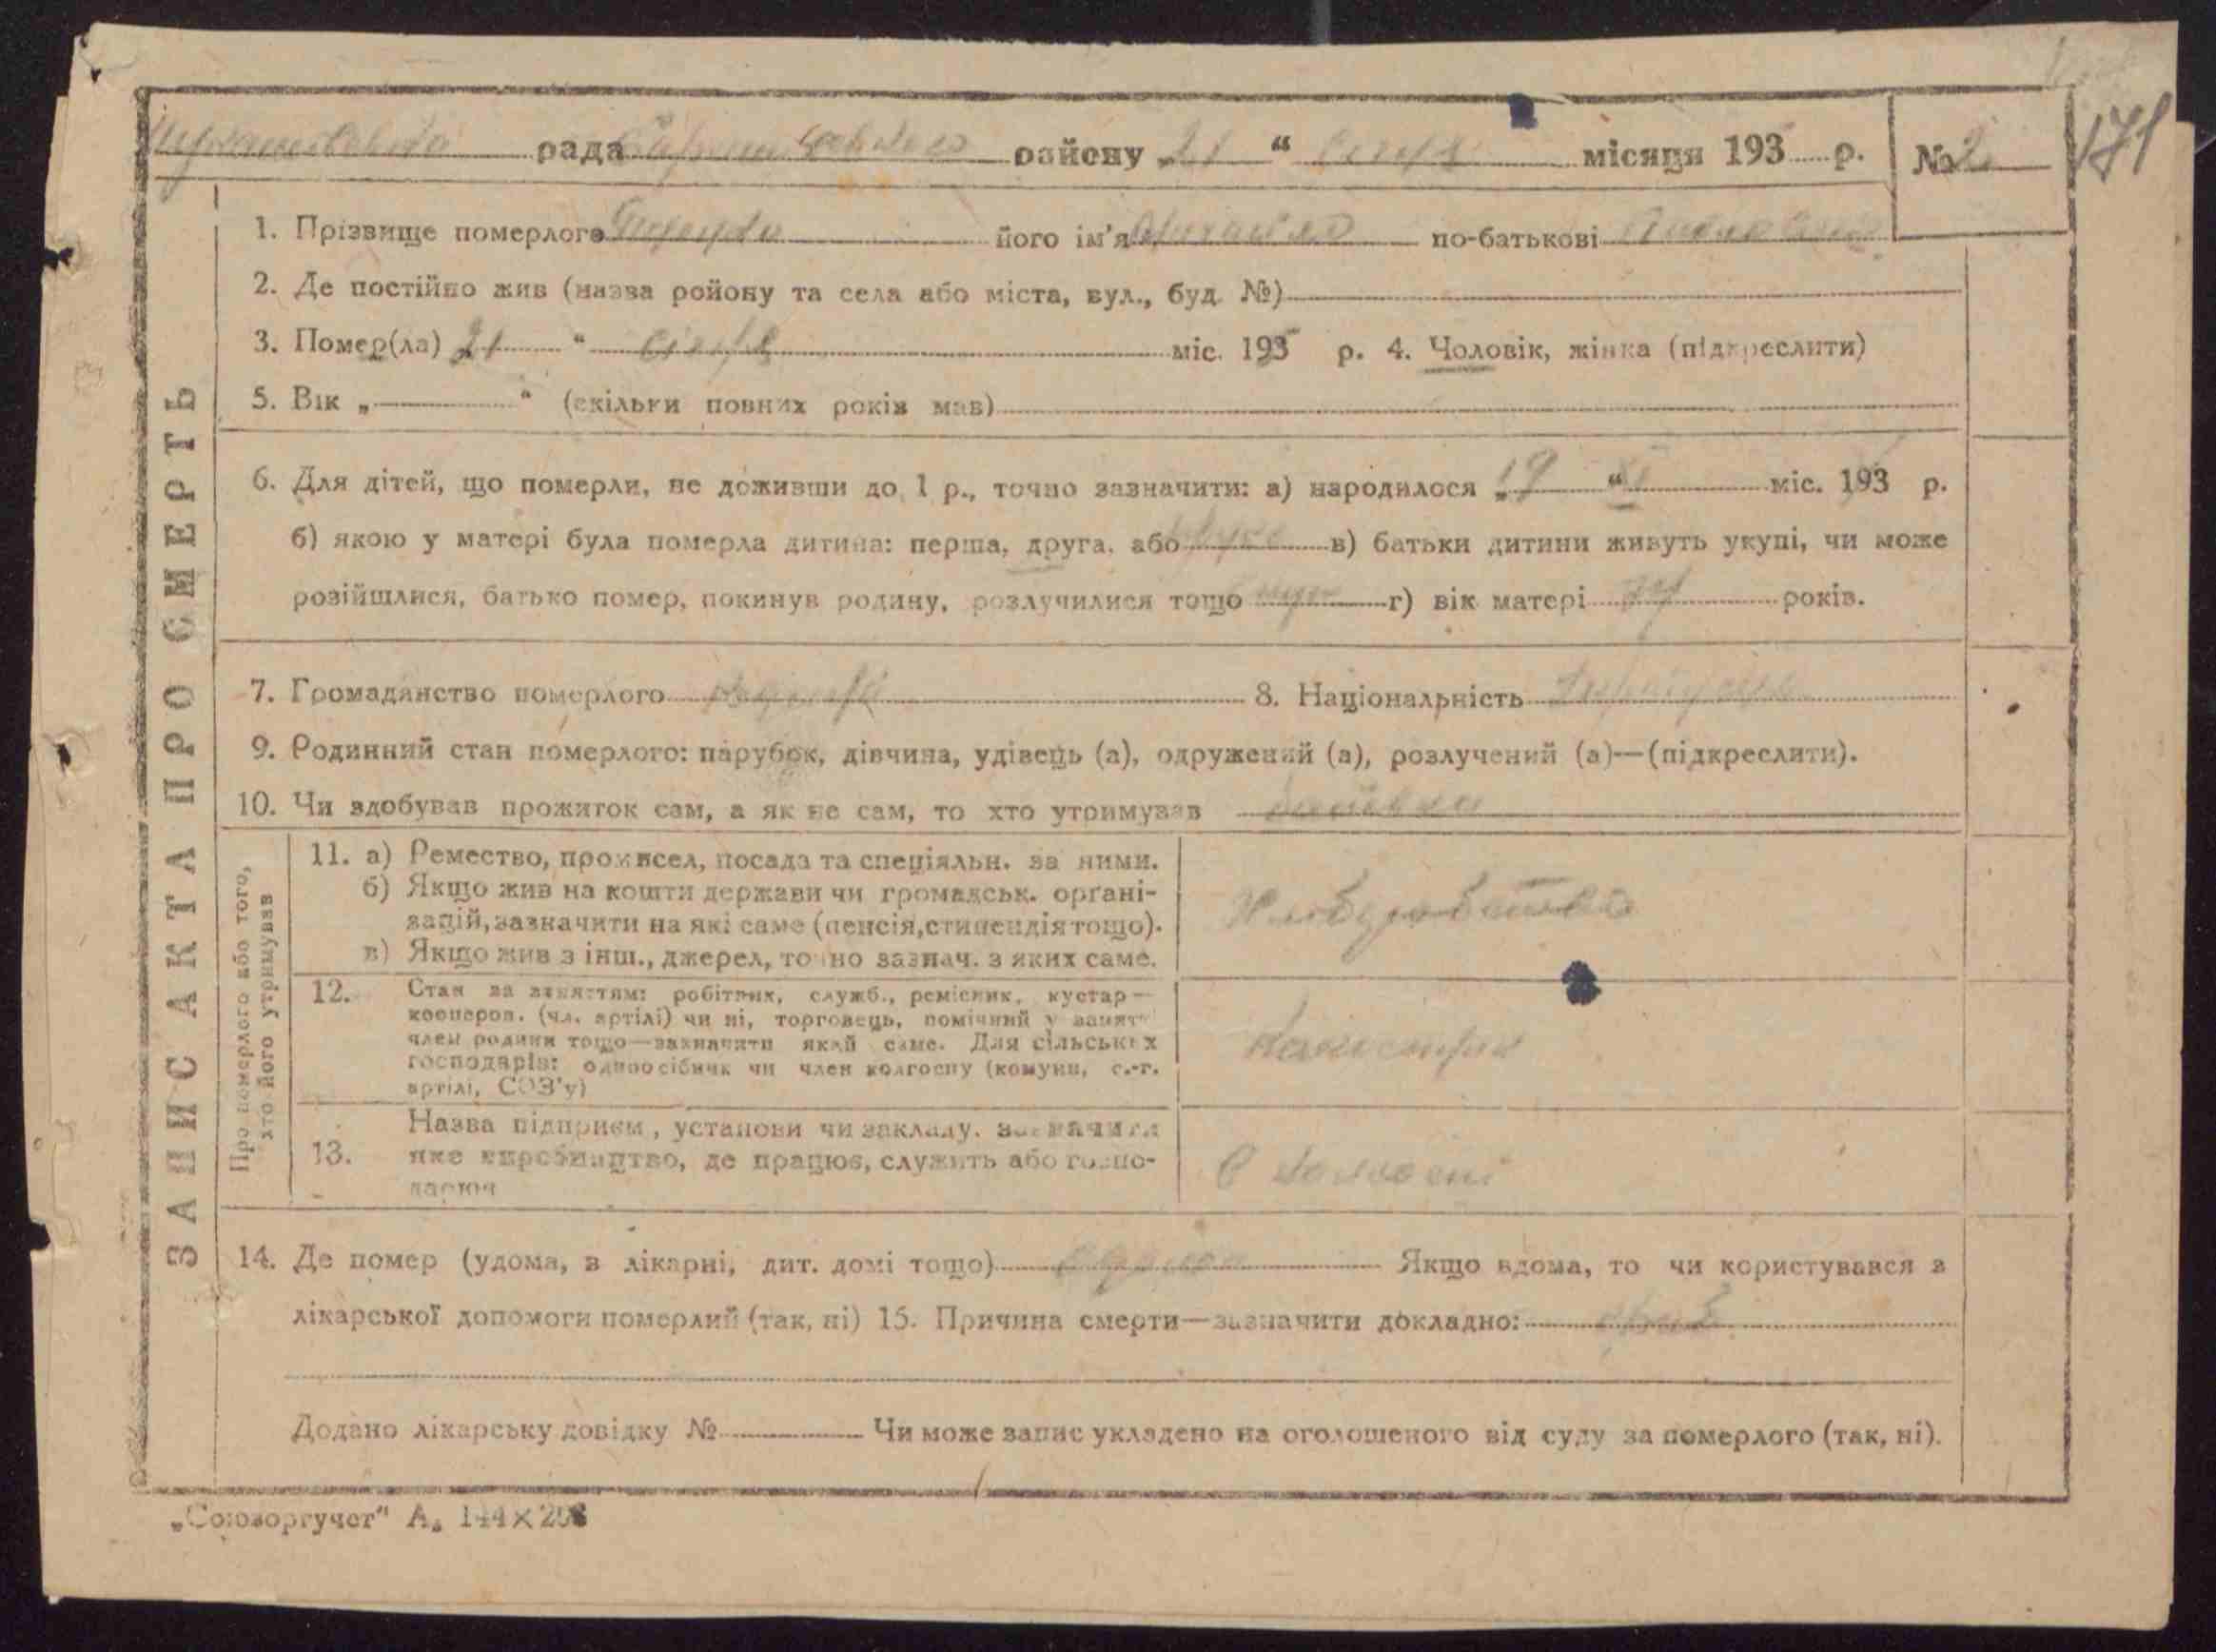 рада району „21 “ січня місяця 193 р. № 2 171
1. Прізвище померлого його ім'я Михайло по-батькові
2. Де постійно жив (назва ройону та села або міста, вул., буд. №)
3. Помер(ла) 21 “ січня міс. 193 р. 4. Чоловік, жінка (підкреслити)
5. Вік „ “ (скільки повних років мав)
6. Для дітей, що померли, не доживши до 1 р., точно зазначити: а) народилося „19 “ міс. 193 р.
б) якою у матері була померла дитина: перша, друга, або друга в) батьки дитини живуть укупі, чи може
розійшлися, батько помер, покинув родину, розлучилися тощо г) вік матері років.
7. Громадянство померлого 8. Національність
9. Родинний стан померлого: парубок, дівчина, удівець (а), одружений (а), розлучений (а)—(підкреслити).
10. Чи здобував прожиток сам, а як не сам, то хто утримував
ЗАПИС АКТА ПРО СМЕРТЬ
Про померлого або того,
хто його утримував
11. а) Ремество, промисел, посада та спеціяльн. за ними.
б) Якщо жив на кошти держави чи громадськ. орґані-
зацій, зазначити на які саме (пенсія, стипендія тощо).
в) Якщо жив з інш., джерел, точно зазнач. з яких саме.
12. Стан за заняттям: робітник, служб., ремісник, кустар—
кооперов. (чл. артілі) чи ні, торговець, помічний у занятт
член родини тощо—зазначити який саме. Для сільських
господарів: одноосібник чи член колгоспу (комуни, с.-г.
артілі, СОЗ'у)
колгоспник
13. Назва підприєм, установи чи закладу, зазначити
яке виробництво, де працює, служить або госпо-
дарює
В колгоспі
14. Де помер (удома, в лікарні, дит. домі тощо) вдома Якщо вдома, то чи користувався з
лікарської допомоги померлий (так, ні) 15. Причина смерти—зазначити докладно:
Додано лікарську довідку № Чи може запис укладено на оголошеного від суду за померлого (так, ні).
„Союзоргучет“ А₅ 144×208